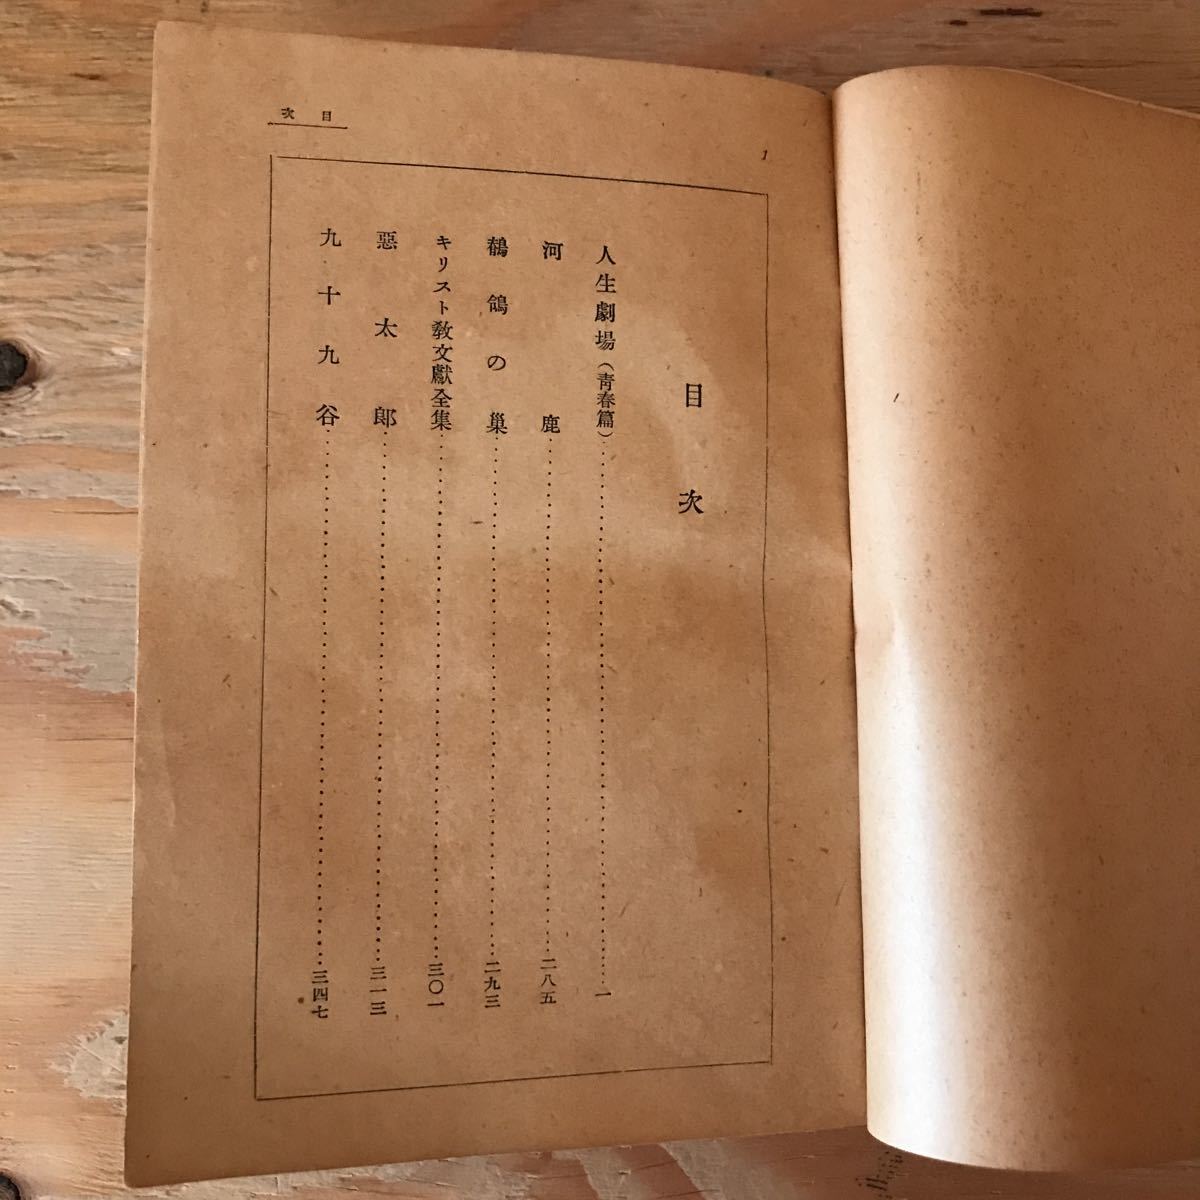 目次
1
目次
人生劇場(靑春篇)……一
河鹿……二八五
鶺鴒の巢……二九三
キリスト敎文獻全集……三〇一
惡太郞……三一三
九十九谷……三四七